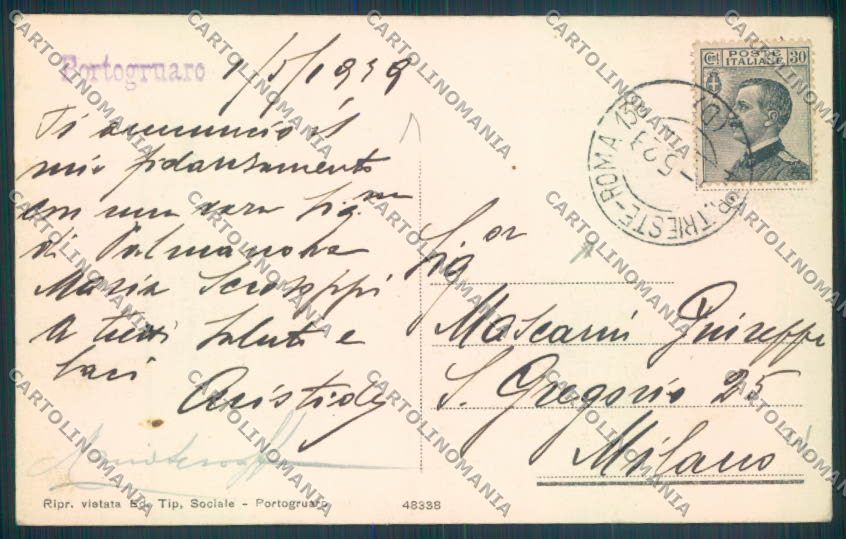 Portogruaro
1/5/1939
Ti annuncio il
mio fidanzamento
con una cara Sig.na
di Palmanova
Maria Scrosoppi
A tutti saluti e
baci
Aristide
Sig.or
Mascarini Giuseppe
S. Gregorio 25
Milano
Cent POSTE ITALIANE 30
TRIESTE-ROMA
Ripr. vietata Ed. Tip. Sociale - Portogruaro
48338
CARTOLINOMANIA